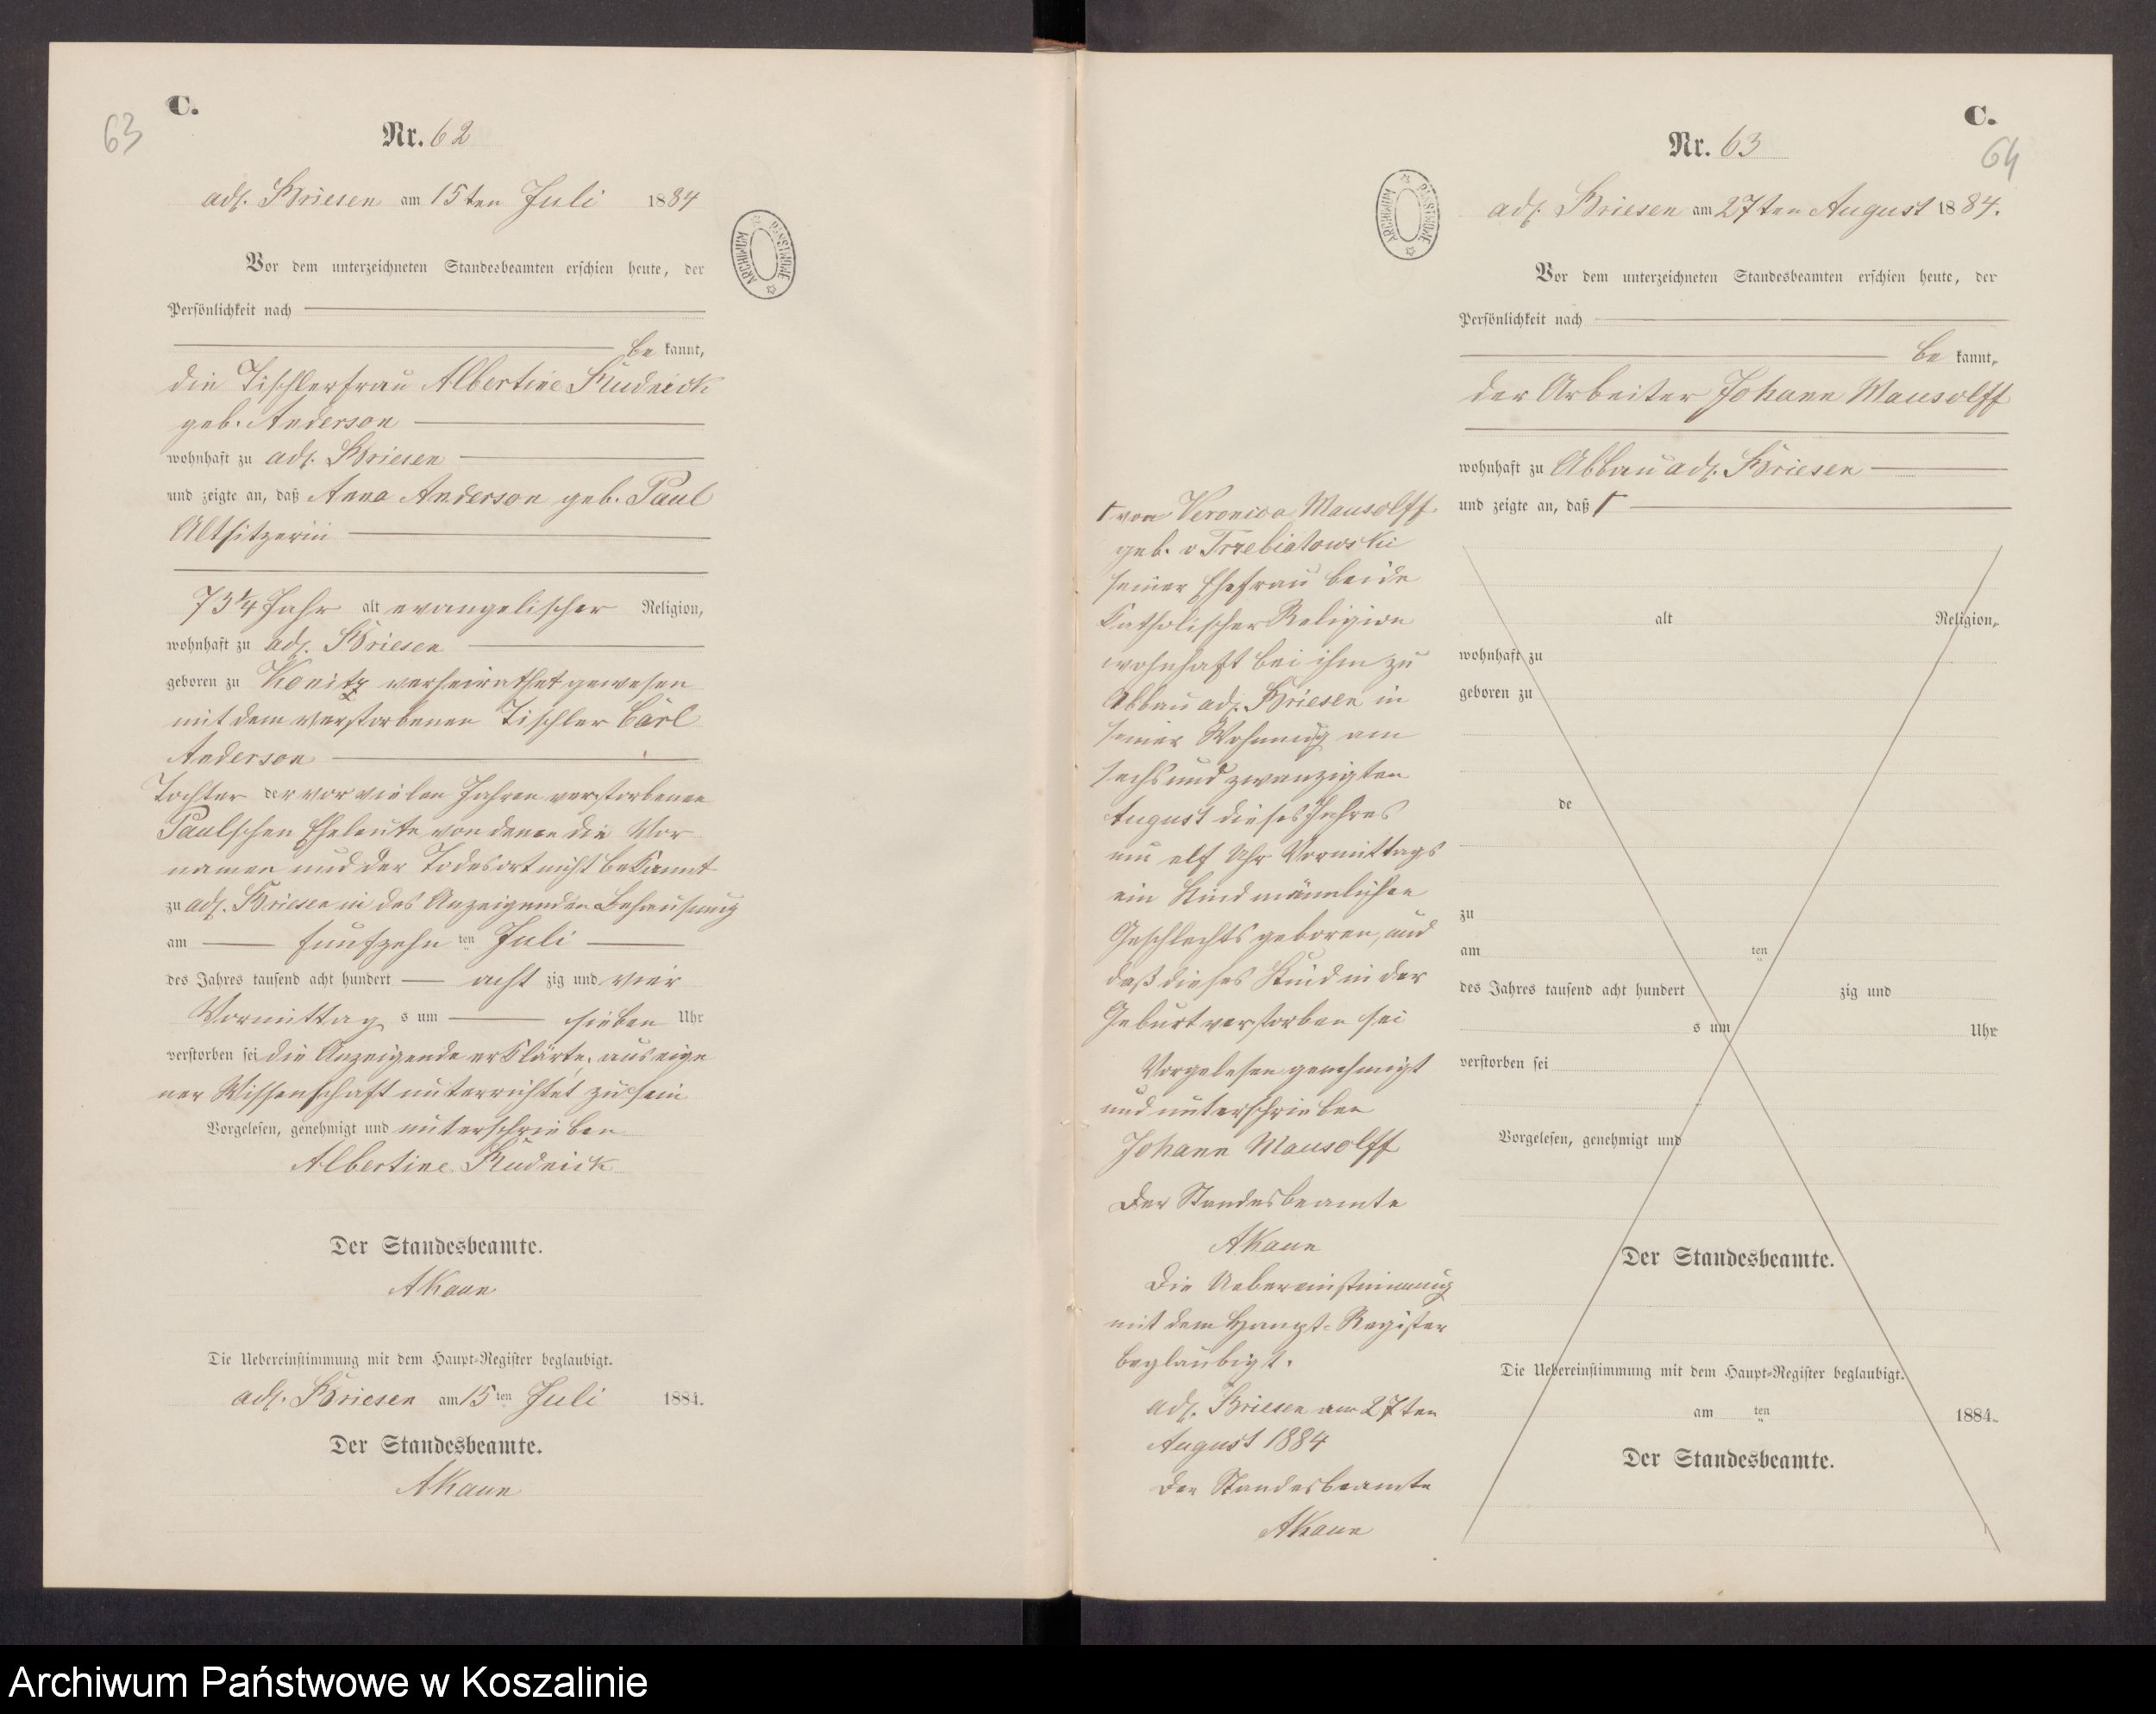 C.
63
Nr. 62
adl. Briesen am 15ten Juli 1884
Vor dem unterzeichneten Standesbeamten erschien heute, der
Persönlichkeit nach
be kannt,
die Tischlerfrau Albertine Rudnick
geb. Anderson
wohnhaft zu adl. Briesen
und zeigte an, daß Anna Anderson geb. Paul
Altsitzerin
73 1/4 Jahr alt evangelischer Religion,
wohnhaft zu adl. Briesen
geboren zu Konitz verheirathet gewesen
mit dem verstorbenen Tischler Carl
Anderson
Tochter der vor vielen Jahren verstorbenen
Paulschen Eheleute von denen die Vor
namen und der Todesort nicht bekannt
zu adl. Briesen in der Anzeigenden Behausung
am funfzehn ten Juli
des Jahres tausend acht hundert acht zig und vier
Vormittag s um sieben Uhr
verstorben sei die Anzeigende erklärte, aus eige
ner Wissenschaft unterrichtet zu sein
Vorgelesen, genehmigt und unterschrieben
Albertine Rudnick
Der Standesbeamte.
AKaun
Die Uebereinstimmung mit dem Haupt-Register beglaubigt.
adl. Briesen am 15ten Juli 1884.
Der Standesbeamte.
AKaun
ARCHIWUM PAŃSTWOWE
C.
64
Nr. 63
adl. Briesen am 27ten August 1884.
ARCHIWUM PAŃSTWOWE
Vor dem unterzeichneten Standesbeamten erschien heute, der
Persönlichkeit nach
be kannt,
der Arbeiter Johann Mausolff
wohnhaft zu Abbau adl. Briesen
und zeigte an, daß Γ
Γ von Veronica Mausolff
geb. v Trzebiatowski
seiner Ehefrau beide
katholischer Religion
wohnhaft bei ihm zu
Abbau adl. Briesen in
seiner Wohnung am
sechs und zwanzigten
August dieses Jahres
um elf Uhr Vormittags
ein Kind männlichen
Geschlechts geboren, und
daß dieses Kind in der
Geburt verstorben sei
Vorgelesen genehmigt
und unterschrieben
Johann Mausolff
Der Standesbeamte
AKaun
Die Uebereinstimmung
mit dem Haupt-Register
beglaubigt.
adl. Briesen am 27ten
August 1884
Der Standesbeamte
AKaun
alt Religion,
wohnhaft zu
geboren zu
de
zu
am ten
des Jahres tausend acht hundert zig und
s um Uhr
verstorben sei
Vorgelesen, genehmigt und
Der Standesbeamte.
Die Uebereinstimmung mit dem Haupt-Register beglaubigt.
am ten 1884.
Der Standesbeamte.
Archiwum Państwowe w Koszalinie